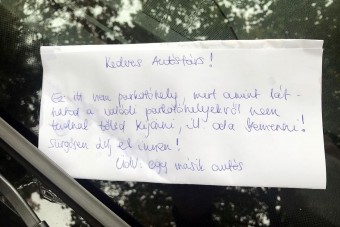 Kedves Autóstárs!
Ez itt nem parkolóhely, mert amint lát-
hatod a valódi parkolóhelyekről nem
tudnak tőled kijönni, ill. oda bemenni!
Sürgősen állj el innen!
Üdv: egy másik autós